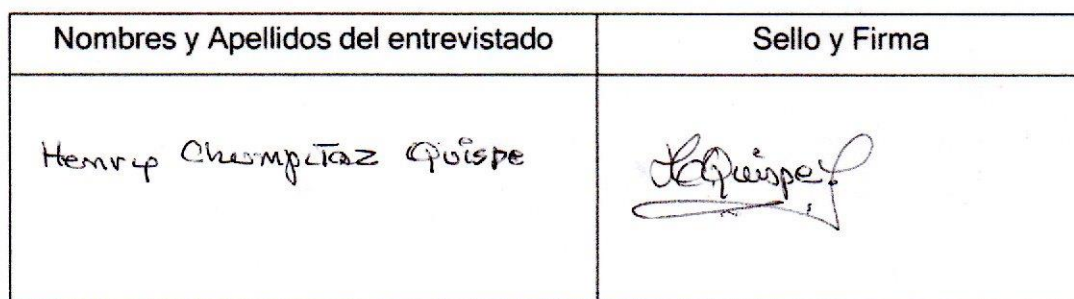 Nombres y Apellidos del entrevistado
Sello y Firma
Henry Chumpitaz Quispe
HCQuispe